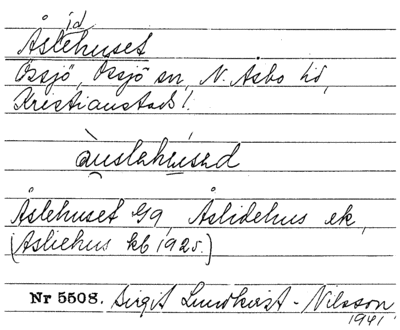 id
Åslehuset
Össjö, Össjö sn, N. Åsbo hd,
Kristianstads l.
àuslahúsəd
Åslehuset G9, Åslidehus ek,
(Asliehus kb 1925.)
Nr 5508. Birgit Lundkvist-Nilsson
1941